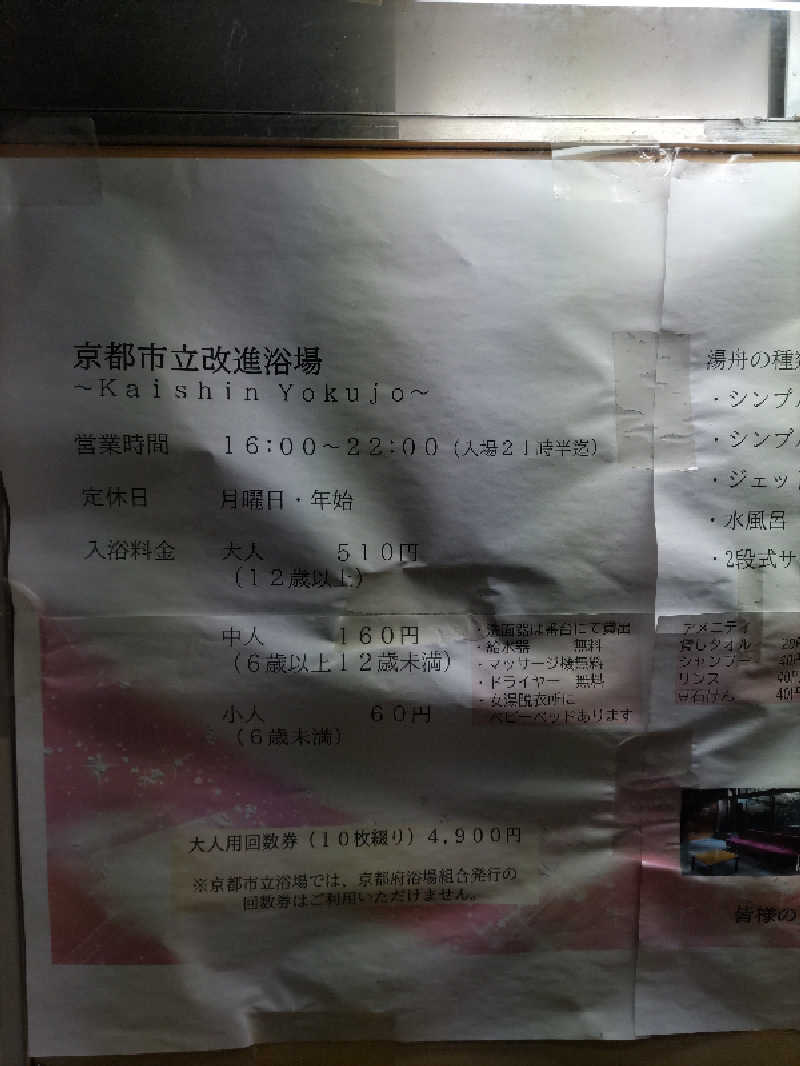 京都市立改進浴場
～Kaishin Yokujo～
営業時間 16:00～22:00 (入場21時半迄)
定休日 月曜日・年始
入浴料金 大人 510円
(12歳以上)
中人 160円
(6歳以上12歳未満)
小人 60円
(6歳未満)
・洗面器は番台にて貸出
・給水器 無料
・マッサージ機無料
・ドライヤー 無料
・女湯脱衣所に
ベビーベッドあります
大人用回数券(10枚綴り) 4,900円
※京都市立浴場では、京都府浴場組合発行の
回数券はご利用いただけません。
湯舟の種類
・シンプル
・シンプル
・ジェット
・水風呂
・2段式サ
アメニティ
貸しタオル
シャンプー 40円
リンス 40円
豆石けん 40円
皆様の